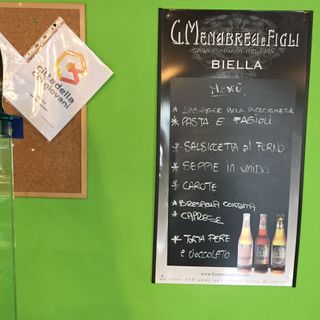 Cittadella
dei giovani
G. MENABREA e FIGLI
CASA FONDATA NEL 1846
BIELLA
MENÙ
* LASAGNE ALLA BOLOGNESE
* PASTA E FAGIOLI
* SALSICCETTA al FORNO
* SEPPIE in umido
* CAROTE
* 
* CAPRESE
* TORTA PERE
E CIOCCOLATO